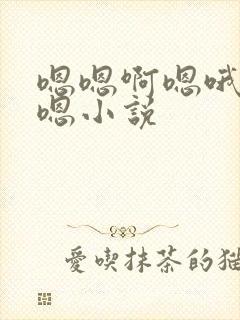 嗯嗯啊嗯哦
嗯小说
愛喫抹茶的猫